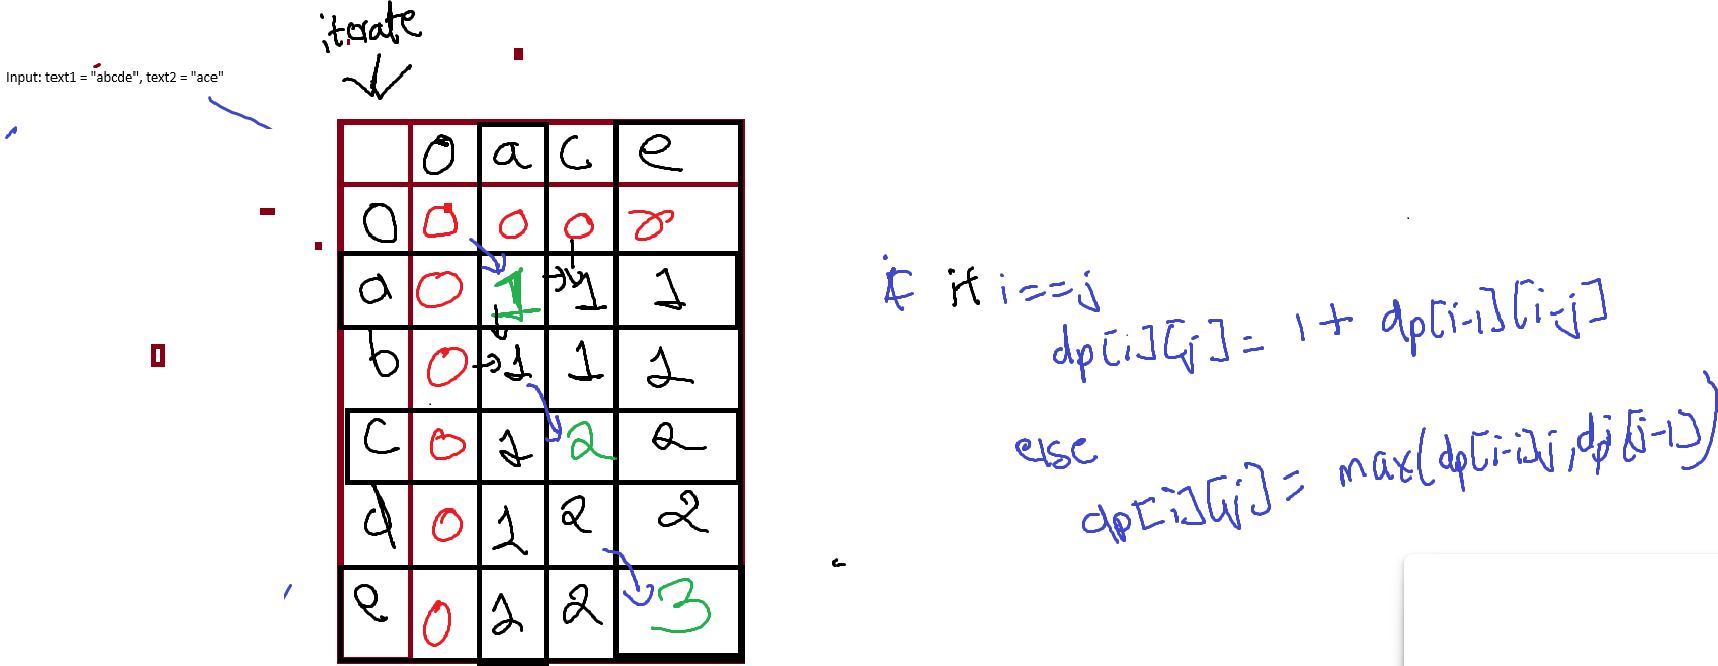 iterate
Input: text1 = "abcde", text2 = "ace"
0 a c e
0 0 0 0 0
a 0 1 1 1
b 0 1 1 1
c 0 1 2 2
d 0 1 2 2
e 0 1 2 3
if if i==j
dp[i][j] = 1 + dp[i-1][i-j]
else
dp[i][j] = max(dp[i-1]j, dpj[j-1])